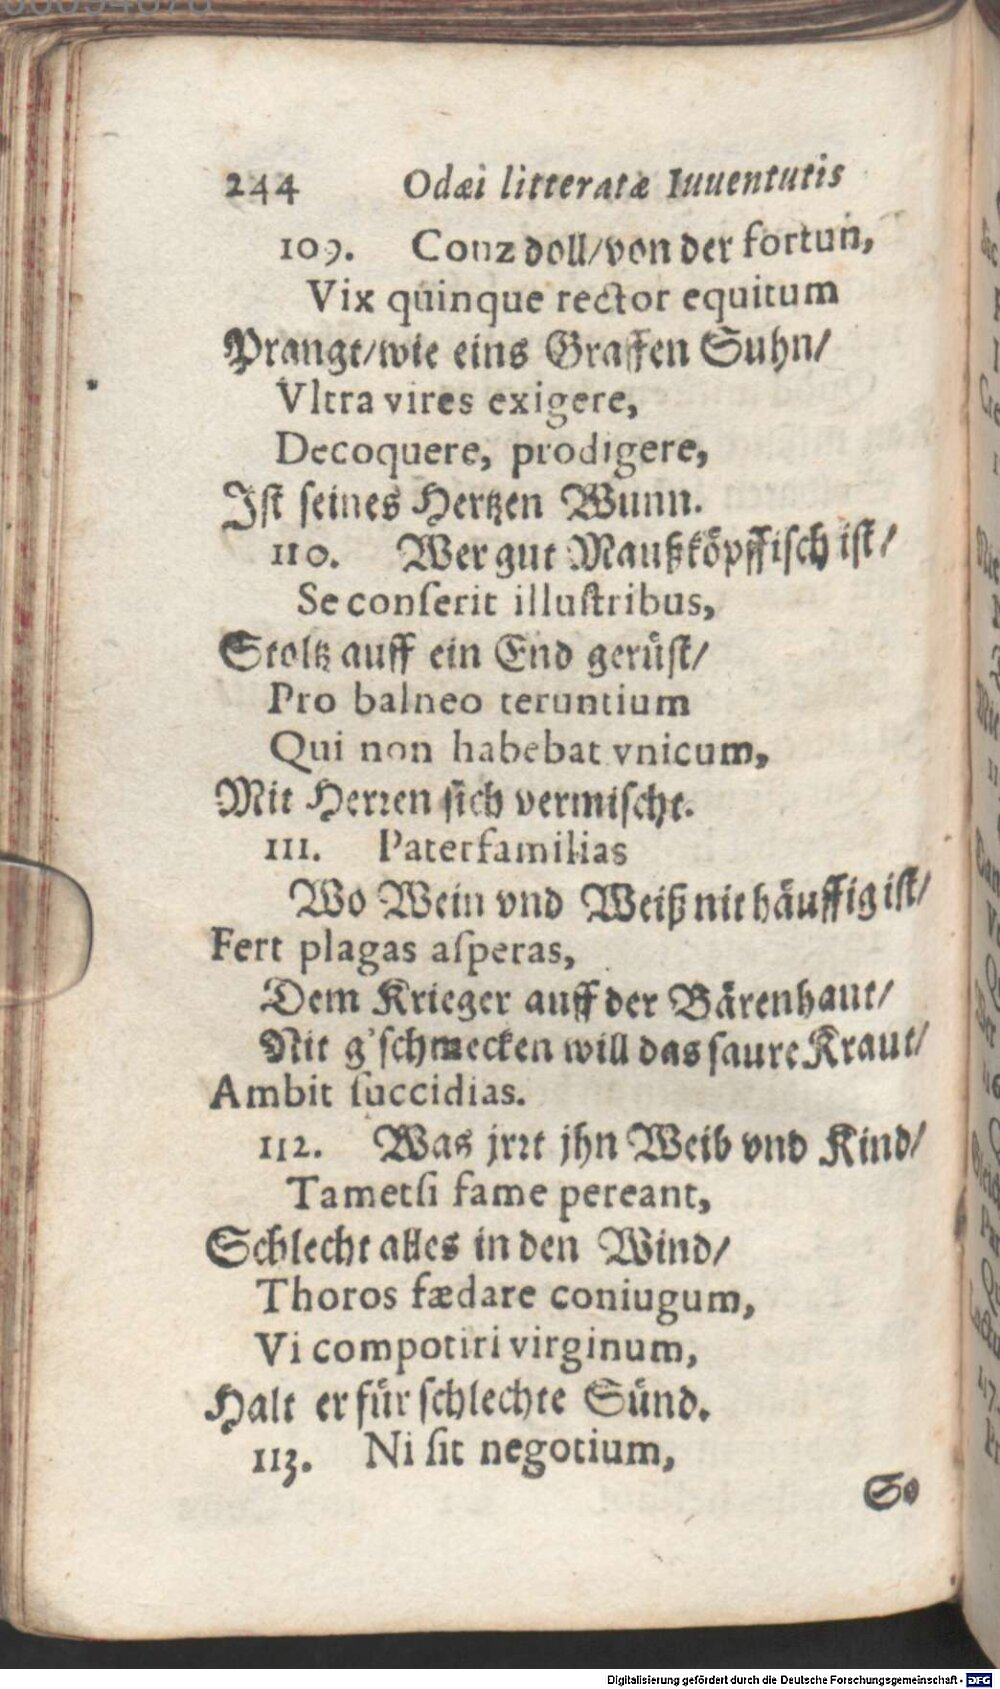 244 Odæi litteratæ Iuuentutis
109. Conz doll/von der fortun,
Vix quinque rector equitum
Prangt/wie eins Graffen Suhn/
Vltra vires exigere,
Decoquere, prodigere,
Iſt ſeines Hertzen Wunn.
110. Wer gut Maußköpffiſch iſt/
Se conſerit illuſtribus,
Stoltz auff ein End gerüſt/
Pro balneo teruntium
Qui non habebat vnicum,
Mit Herren ſich vermiſcht.
111. Paterfamilias
Wo Wein vnd Weiß nit häuffig iſt/
Fert plagas aſperas,
Dem Krieger auff der Bärenhaut/
Nit g'ſchmecken will das ſaure Kraut/
Ambit ſuccidias.
112. Was jrrt jhn Weib vnd Kind/
Tametſi fame pereant,
Schlecht alles in den Wind/
Thoros fædare coniugum,
Vi compotiri virginum,
Halt er für ſchlechte Sünd.
113. Ni ſit negotium,
So
Digitalisierung gefördert durch die Deutsche Forschungsgemeinschaft - DFG